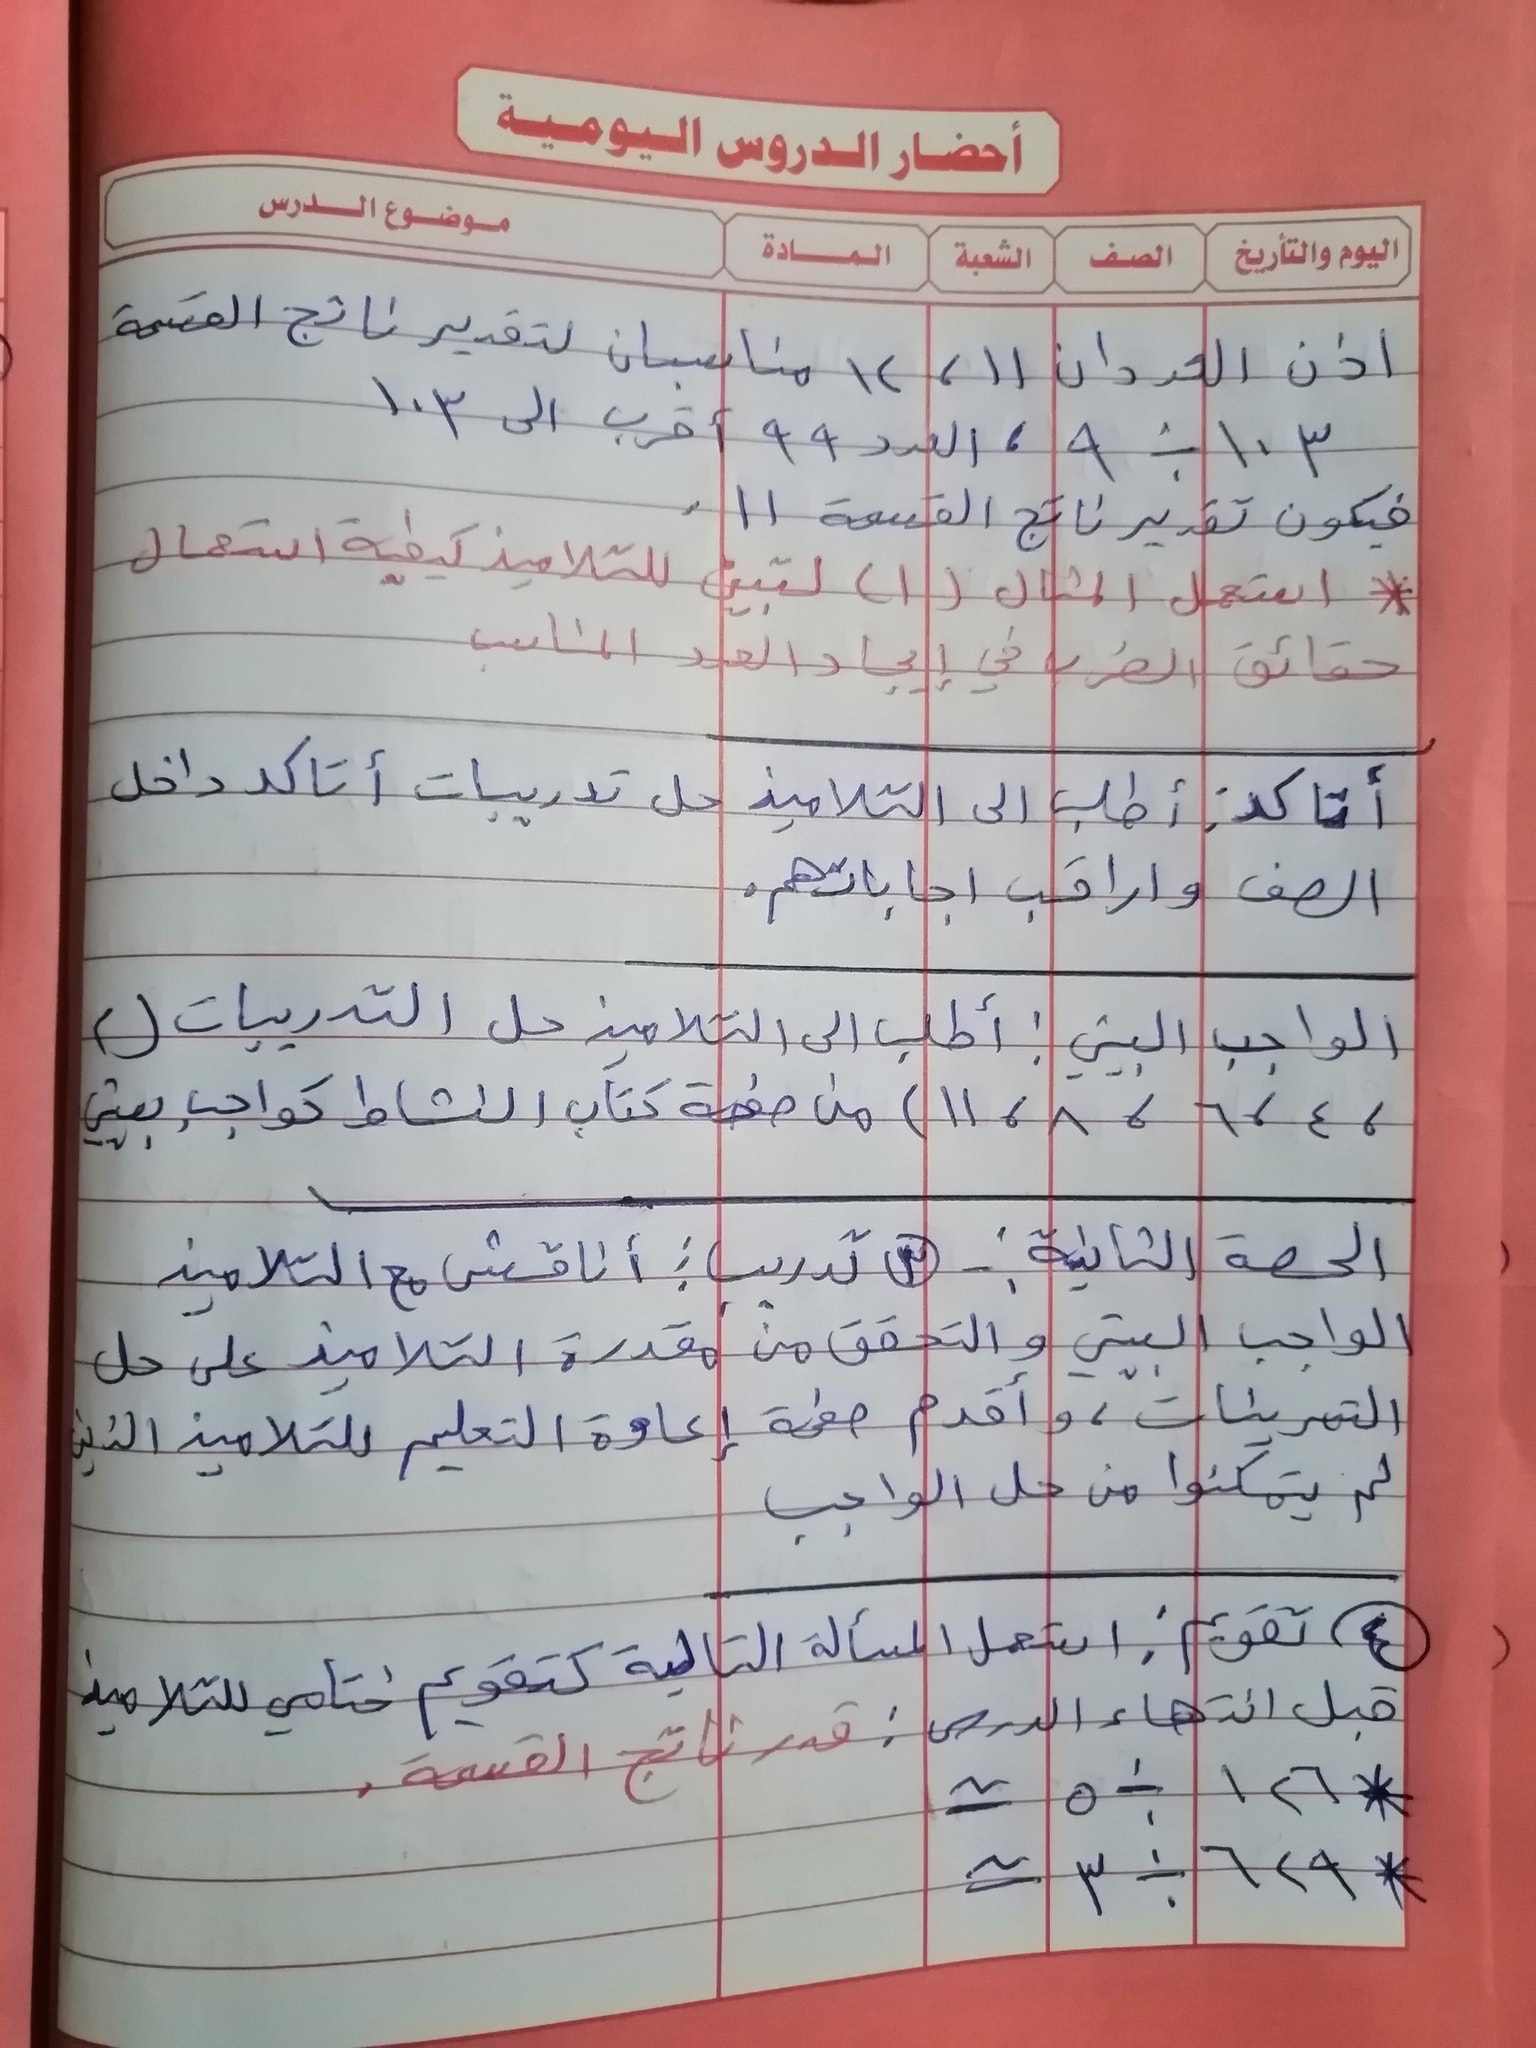 أحضار الدروس اليومية
اليوم والتأريخ الصف الشعبة المادة موضوع الدرس
اذن العددان ١١ ، ١٢ مناسبان لتقدير ناتج القسمة
١٠٣ ÷ ٩ ، العدد ٩٩ أقرب الى ١٠٣
فيكون تقدير ناتج القسمة ١١ .
* استعمل المثال (١) لتبين للتلاميذ كيفية استعمال
حقائق الضرب في إيجاد العدد المناسب
أتاكد: أطلب الى التلاميذ حل تدريبات أتاكد داخل
الصف واراقب اجاباتهم.
الواجب البيتي : أطلب الى التلاميذ حل التدريبات (٢
، ٤ ، ٦ ، ٨ ، ١١) من صفحة كتاب النشاط كواجب بيتي
الحصة الثانية :- ③ تدريب : أناقش مع التلاميذ
الواجب البيتي والتحقق من مقدرة التلاميذ على حل
التمرينات ، و أقدم صفحة إعادة التعليم للتلاميذ الذين
لم يتمكنوا من حل الواجب
④ تقويم : استعمل المسألة التالية كتقويم ختامي للتلاميذ
قبل انتهاء الدرس : قدر ناتج القسمة .
* ١٢٦ ÷ ٥ ≃
* ٦٢٩ ÷ ٣ ≃